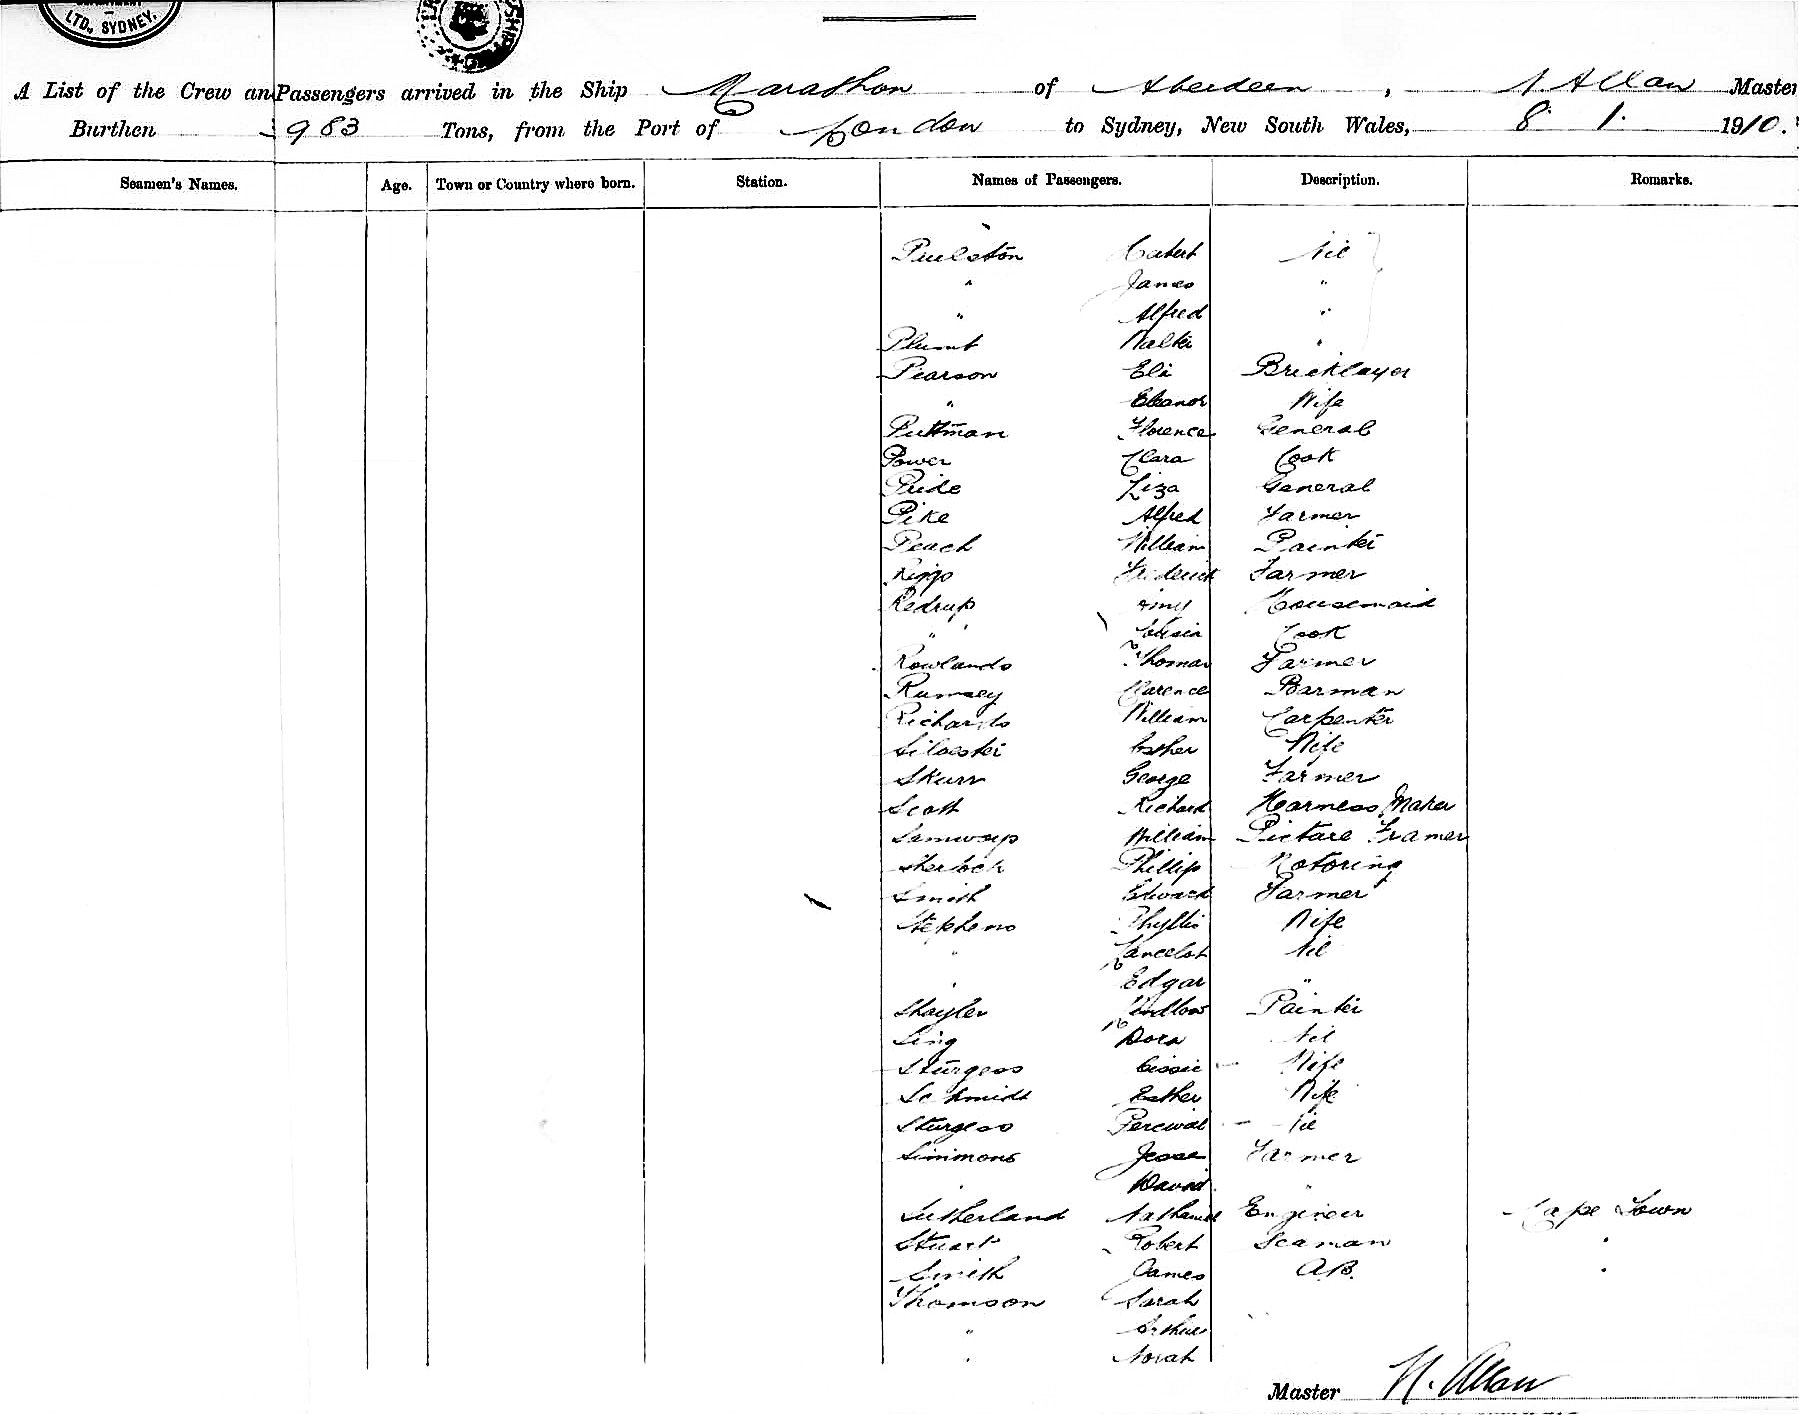 LTD., SYDNEY.
A List of the Crew an Passengers arrived in the Ship Marathon of Aberdeen, N. Allan Master
Burthen 983 Tons, from the Port of London to Sydney, New South Wales, 8. 1. 1910.
Seamen's Names. Age. Town or Country where born. Station. Names of Passengers. Description. Remarks.
Puelston Nil
" James "
" Alfred "
Plumb Walter "
Pearson Eli Bricklayer
" Eleanor Wife
Puttman Florence General
Power Clara Cook
Pride Liza General
Pike Alfred Farmer
Peach William Painter
Frederick Farmer
Redrup Amy Housemaid
" Cook
Rowlands Thomas Farmer
Rumsey Clarence Barman
Richards William Carpenter
Silvester Esther Wife
Skurr George Farmer
Scott Richard Harness Maker
William Picture Framer
Sherlock Phillip Motoring
Smith Edward Farmer
Stephens Phyllis Wife
" Lancelot Nil
" Edgar "
Shayler Ludlow Painter
Sing Dora Nil
Sturgess Cissie Wife
Schmidt Esther Wife
Sturgess Percival Nil
Simmons Jesse Farmer
" David "
Sutherland Nathaniel Engineer Cape Town
Stuart Robert Seaman "
Smith James A.B. "
Thomson Sarah
" Arthur
" Norah
Master N. Allan